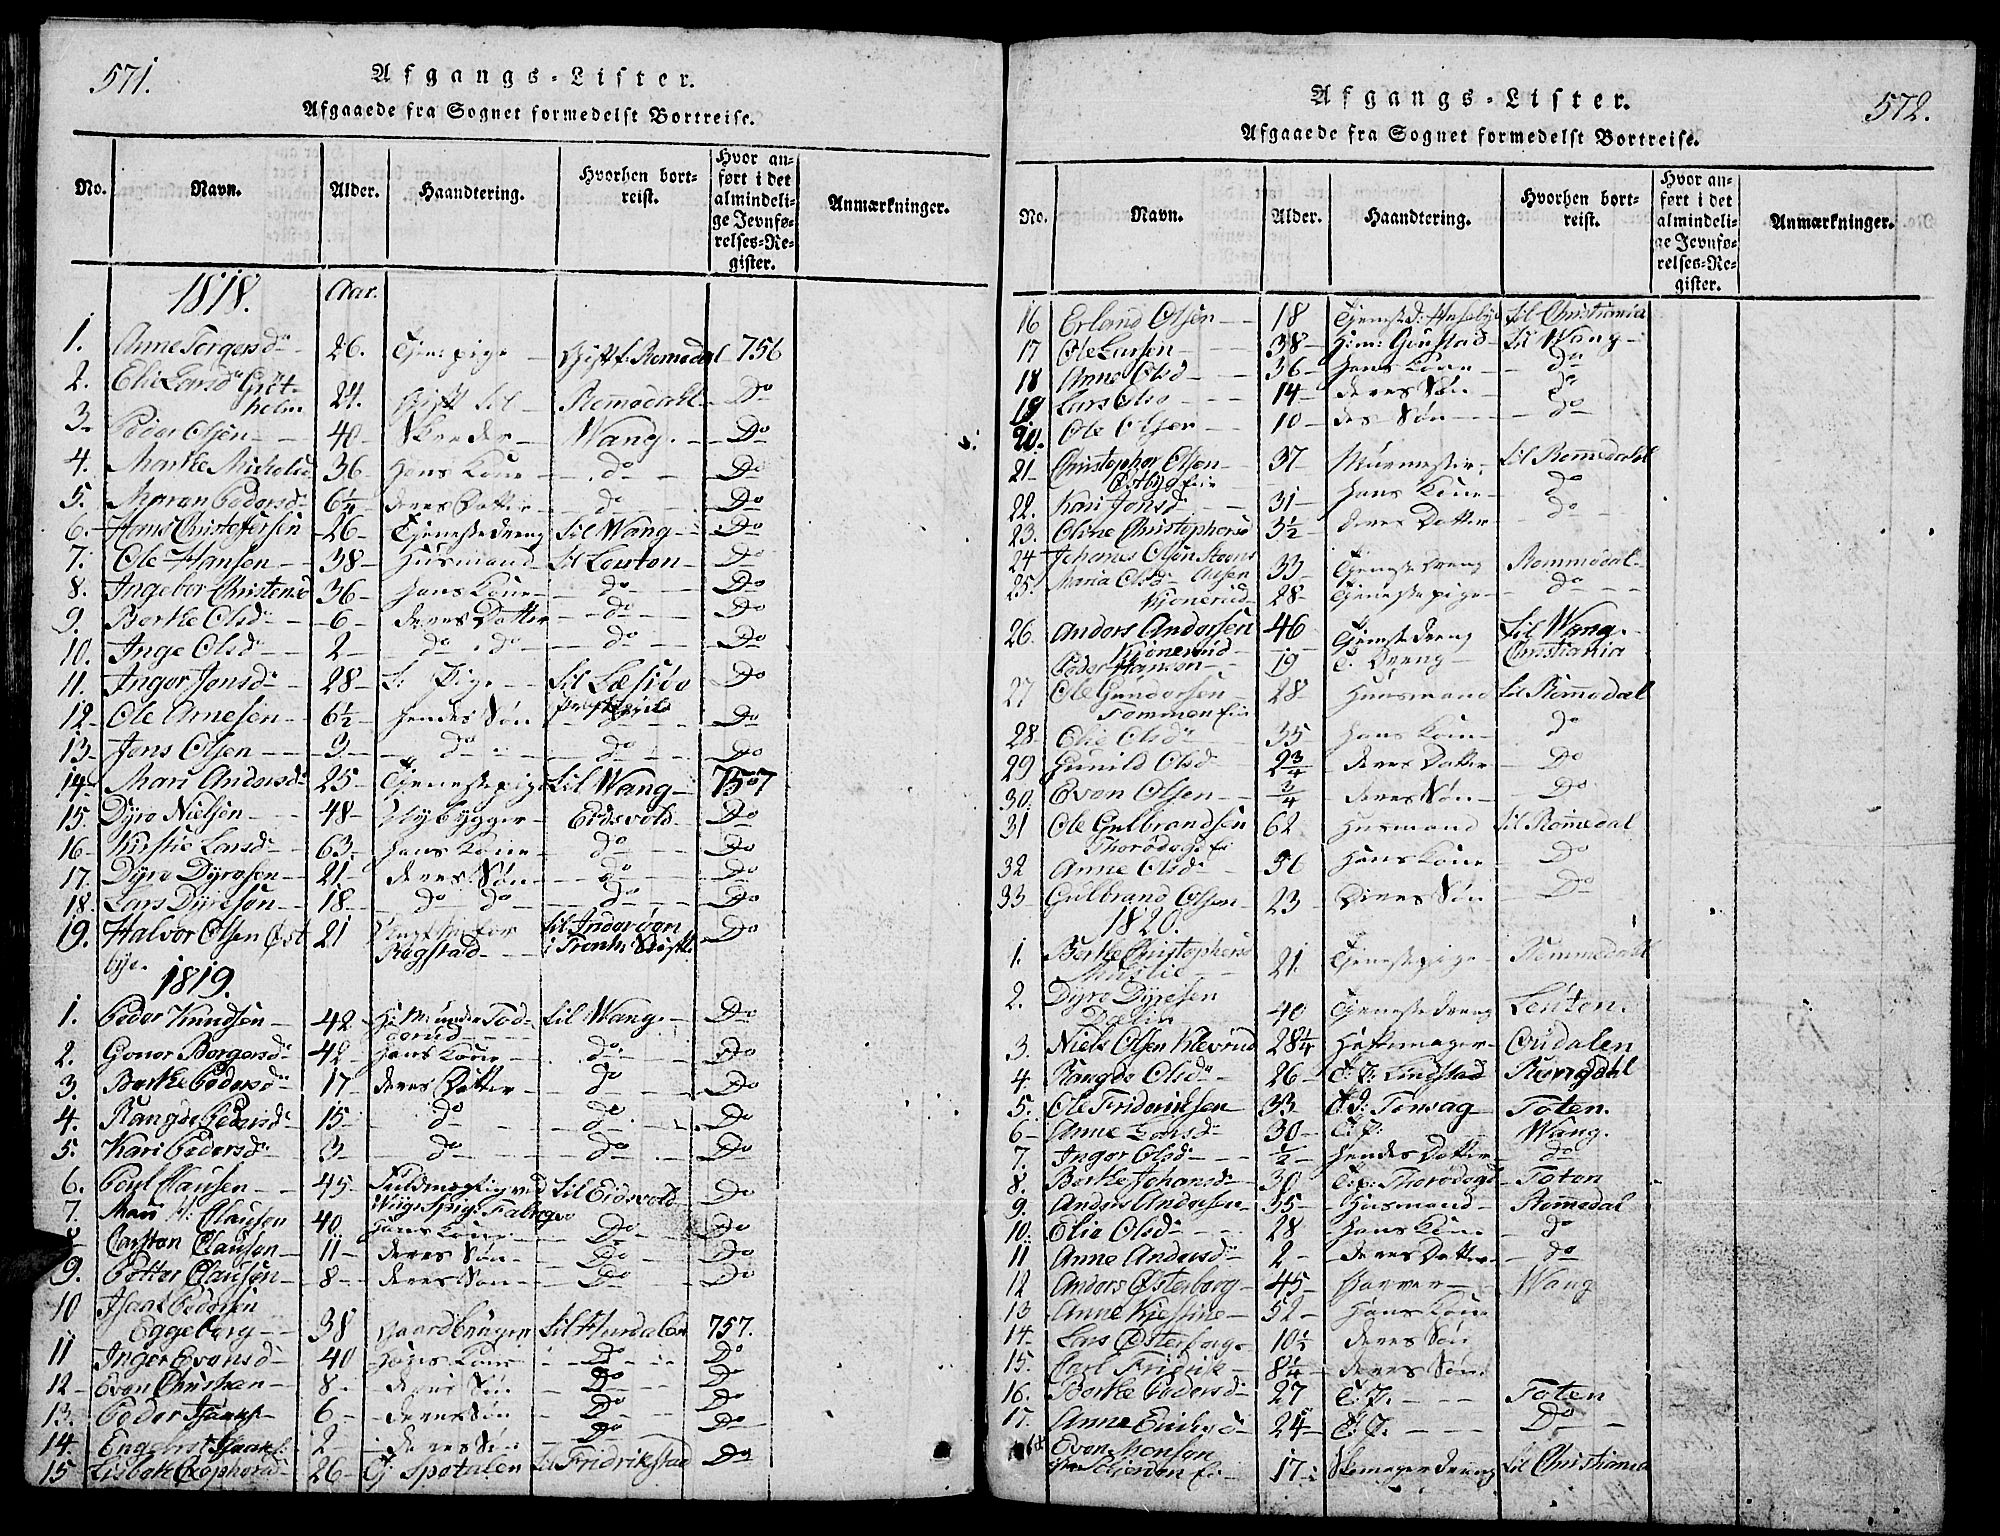 571.
Afgangs-Lister.
Afgaaede fra Sognet formedelst Bortreise.
No. Navn. Alder. Haandtering. Hvorhen bortreist. Hvor anført i det almindelige Jevnførelses-Register. Anmærkninger.
1818. Aar.
1. Anne Torgersd. 26. Tjen: pige Romedal 756
2. Elie Larsd. Grøtholm 24. Gift til Romedahl Do
3. Peder Olsen 40 Wang. Do
4. Marthe 36 Hans Kone do Do
5. Maren Pedersd. 6¼ deres Datter do Do
6. Hans Christofersen 26 Tjenestedreng til Wang Do
7. Ole Hansen 38 Husmand til Leuton Do
8. Ingebor Christensd 36 Hans Kone do Do
9. Berthe Olsd. 6 deres Datter do Do
10. Inge Olsd. 2 do do do Do
11. Inger Jonsd. 28 t: Pige til Do
12. Ole Arnesen 6½ hendes Søn Do
13. Jens Olsen 3 do do Do
14. Mari Andersd. 25 Tjenestepige til Wang 757
15. Dyre Nielsen 48 Nybygger Eidsvold Do
16. Kirstie Larsd. 63 hans Kone do Do
17. Dyre Dyresen 21 deres Søn do Do
18. Lars Dyresen 18 do do do Do
19. Halvor Olsen Østbye. 21 Rogstad til Inderøen i Tronh. Stift Do
1819.
1. Peder Knudsen 42 til Wang. Do
2. Goner Borgersd. 42 Hans Kone do Do
3. Berthe Pedersd. 17 deres Datter do Do
4. Rangde Pedersd. 15 do do Do
5. Kari Pedersd. 3 do do Do
6. Poul Clausen 45 Fuldmægtig ved til Eidsvold Do
7. Mari H: Clausen 40 Hans Kone Do Do
8 Carsten Clausen 11 deres Søn Do Do
9. Petter Clausen 8 deres Søn Do Do
10 Isaak Pedersen Eggeberg 38 Gaardbruger til Hurdalen 757.
11 Inger Evensd. 40 Hans Kone Do Do
12 Even Christian 8. deres Søn Do Do
13. Peder Isaaks. 6 deres Søn Do Do
14. Engebret Isaaks. 2 deres Søn Do
15 Lisbeth 26 til Fridrikstad Do
572.
Afgangs-Lister.
Afgaaede fra Sognet formedelst Bortreise.
No. Navn. Alder. Haandtering. Hvorhen bortreist. Hvor anført i det almindelige Jevnførelses-Register. Anmærkninger.
16 Erland Olsen 18 til Christiania
17 Ole Larsen 38 til Wang
18 Anne Olsd 36 Hans Kone do
19 Lars Olse 14 deres Søn do
20. Ole Olsen 10 des Søn do
21 Christopher Olsen Østbyeeie 37 Muurmester til Romedahl
22. Kari Jonsd 31 Hans Kone do
23. Oline Christophersd 3½ deres Datter do
24 Johanes Olsen 33 Tjenestedreng Rommedal
25. Maria Olsd. Kjonerud 28 Tjenestepige do
26. Anders Andersen Kjonerud 46 Tjenestedreng til Wang.
Peder Hansen 19 t. Dreng Christiania
27 Ole Gundersen Tommeneie 28 Huusmand til Romedal
28. Elie Olsd. 35 Hans Kone do
29 Gunild Olsd 2¾ deres Datter Do
30. Even Olsen ¾ deres Søn Do
31 Ole Gulbrandsen 62 Husmand til Romedal
32 Anne Olsd. 56 Hans Kone Do
33 Gulbrand Olsen 23 Deres Søn Do
1820.
1. Berthe Christophersd 21. Tjenestepige Rommedahl
2. Dyre Dyresen 40 Tjenestedreng Leuten.
3. Niels Olsen Klevrud 28¼ Oudalen
4. Rangde Olsd. 26 T: P: Lindstad
5. Ole Frideriksen 33 Toten.
6 Anne Larsd. 30 T: P: Wang.
7. Inger Olsd ½ Hendes Datter do
8. Berthe Johansd. 30 Toten
9. Anders Andersen 35 Husmand Romedal
10. Elie Olsd. 28 Hans Kone do
11 Anne Andersd. 2 deres Datter do
12 Anders Østerberg 45 Garver Wang
13 Anne Kirstine 52 Hans Kone
14. Lars Østerberg 10½ deres Søn
15. Carl Fridrik 8¼ deres Søn
16. Berthe Pedersd 27 T: P. Toten
17. Anne Ericksd 24 T: P. Do
Even Monsen 17 Skomagerdreng til Christiania